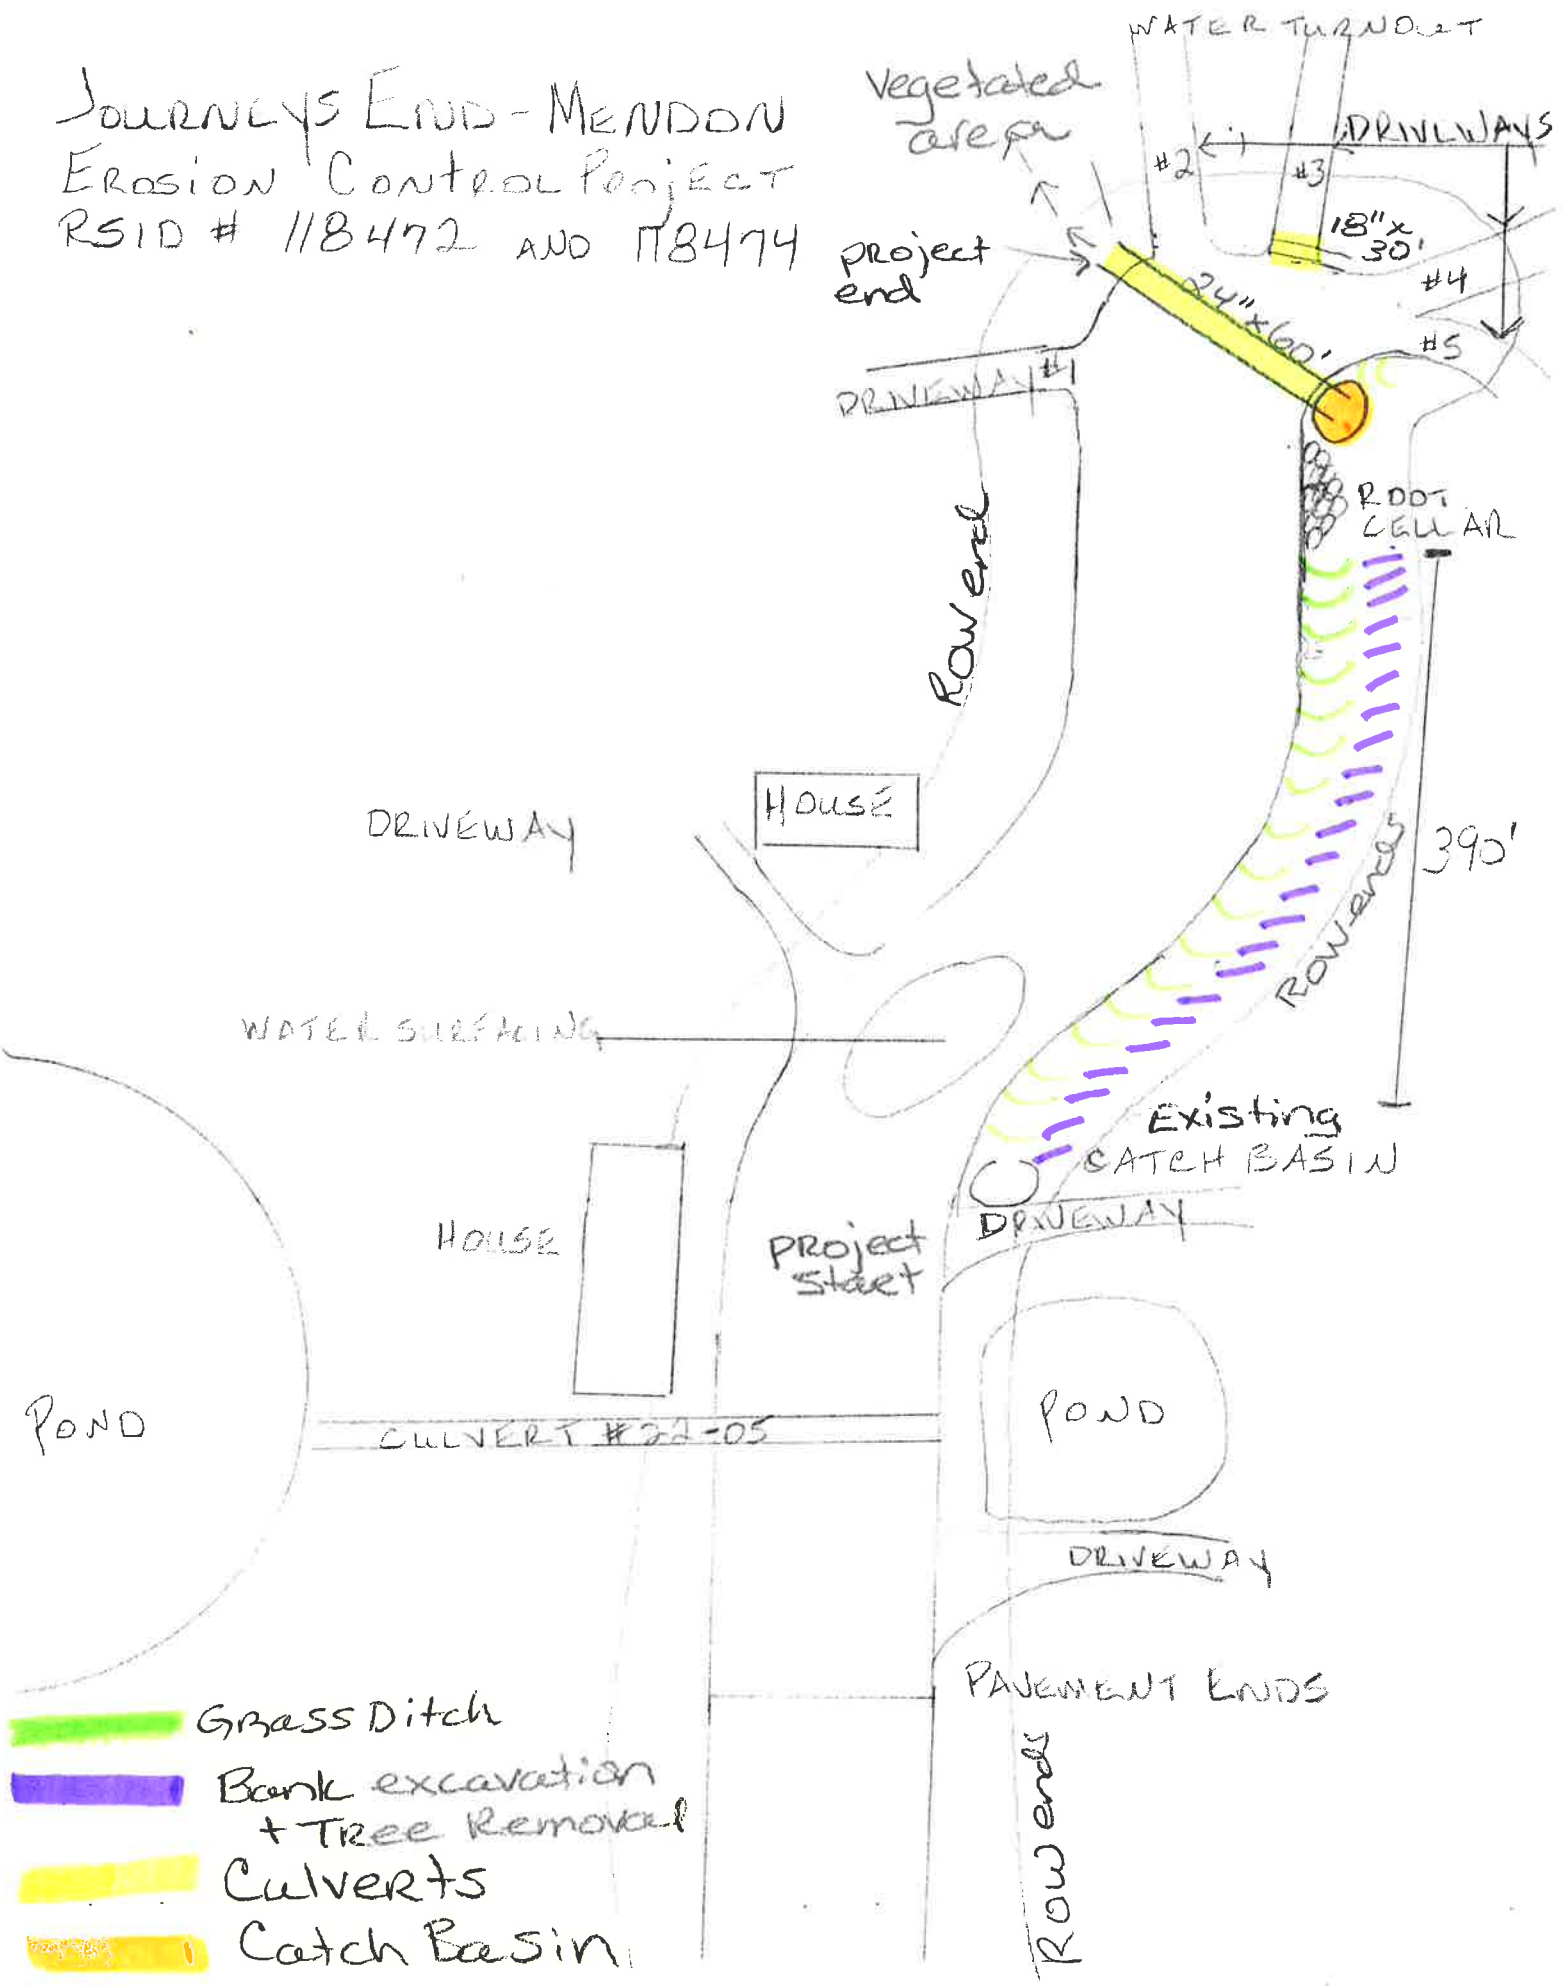 JOURNEYS END - MENDON
EROSION CONTROL PROJECT
RSID # 118472 AND 118474
WATER TURNOUT
Vegetated
area
DRIVEWAYS
#2
#3
18" x
30'
PROJECT
end
#4
24" x 60'
#5
DRIVEWAY #1
ROOT
CELLAR
ROW end
HOUSE
DRIVEWAY
390'
ROW ends
WATER SURFACING
Existing
CATCH BASIN
DRIVEWAY
HOUSE
PROJECT
Start
POND
POND
CULVERT #22-05
DRIVEWAY
PAVEMENT ENDS
ROW ends
Grass Ditch
Bank excavation
+ Tree Removal
Culverts
Catch Basin